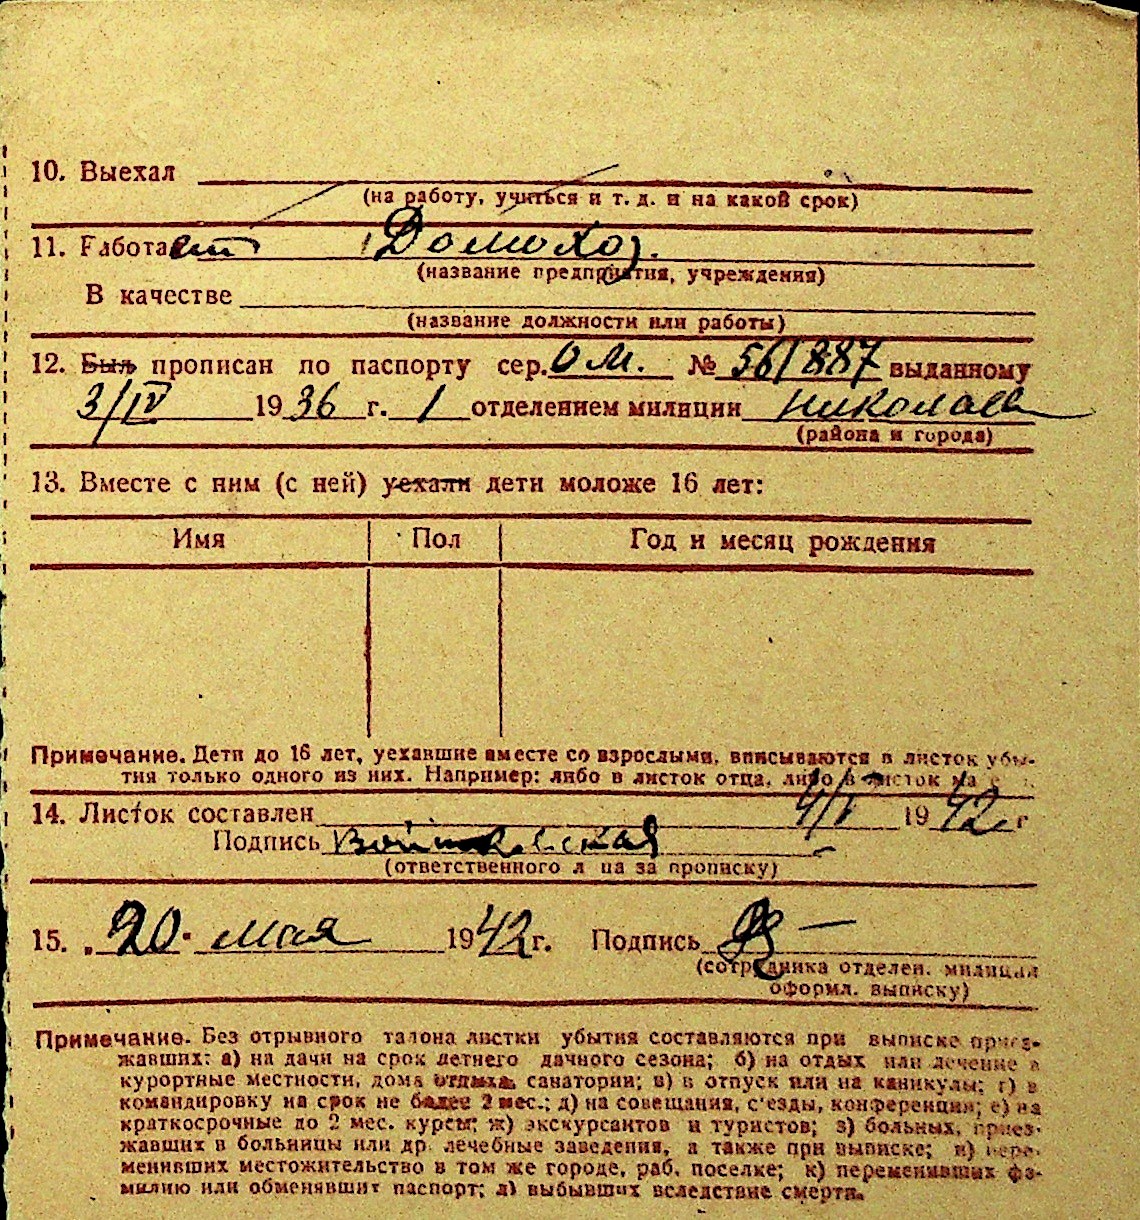 10. Выехал
(на работу, учиться и т. д. и на какой срок)
11. Работает Домохоз.
(название предприятия, учреждения)
В качестве
(название должности или работы)
12. Был прописан по паспорту сер. ОМ. № 561887 выданному
3/IV 1936 г. 1 отделением милиции Николаев
(района и города)
13. Вместе с ним (с ней) уехали дети моложе 16 лет:
Имя Пол Год и месяц рождения
Примечание. Дети до 16 лет, уехавшие вместе со взрослыми, вписываются в листок убы-
тия только одного из них. Например: либо в листок отца, либо в листок
14. Листок составлен 4/V 1942 г
Подпись
(ответственного лица за прописку)
15. „20" мая 1942 г. Подпись
(сотрудника отделен. милиции
оформл. выписку)
Примечание. Без отрывного талона листки убытия составляются при выписке приез-
жавших: а) на дачи на срок летнего дачного сезона; б) на отдых или лечение в
курортные местности, дома отдыха, санатории; в) в отпуск или на каникулы; г) в
командировку на срок не более 2 мес.; д) на совещания, с'езды, конференции; е) на
краткосрочные до 2 мес. курсы; ж) экскурсантов и туристов; з) больных, приез-
жавших в больницы или др. лечебные заведения, а также при выписке; и) пере-
менивших местожительство в том же городе, раб. поселке; к) переменивших фа-
милию или обменявшит паспорт; л) выбывших вследствие смерти.